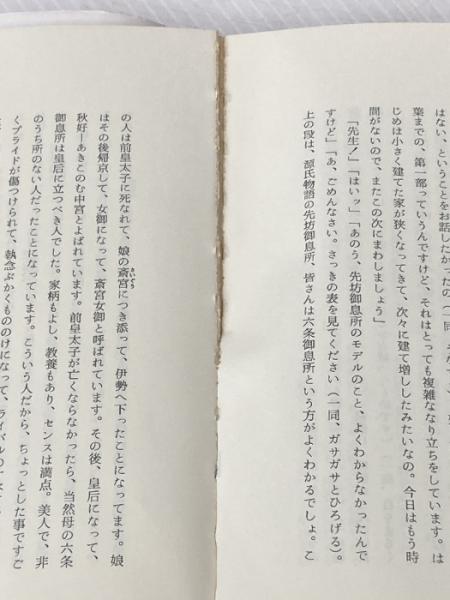 はない、ということをお話したかったの(一
葉までの、第一部っていうんですけど、それはとっても複雑ななり立ちをしています。は
じめは小さく建てた家が狭くなってきて、次々に建て増ししたみたいなの。今日はもう時
間がないので、またこの次にまわしましょう」
「先生!」「はいッ」「あのう、先坊御息所のモデルのこと、よくわからなかったんで
すけど」「あ、ごめんなさい。さっきの表を見てください(一同、ガサガサとひろげる)。
上の段は、源氏物語の先坊御息所、皆さんは六条御息所という方がよくわかるでしょ。こ
の人は前皇太子に死なれて、娘の斎宮につき添って、伊勢へ下ったことになってます。娘
はその後帰京して、女御になって、斎宮女御と呼ばれています。その後、皇后になって、
秋好=あきこのむ中宮とよばれています。前皇太子が亡くならなかったら、当然母の六条
御息所は皇后に立つべき人でした。家柄もよし、教養もあり、センスは満点。美人で、非
のうち所のない人だったことになっています。こういう人だから、ちょっとした事ですご
くプライドが傷つけられて、執念ぶかくもののけになって、ライバルの